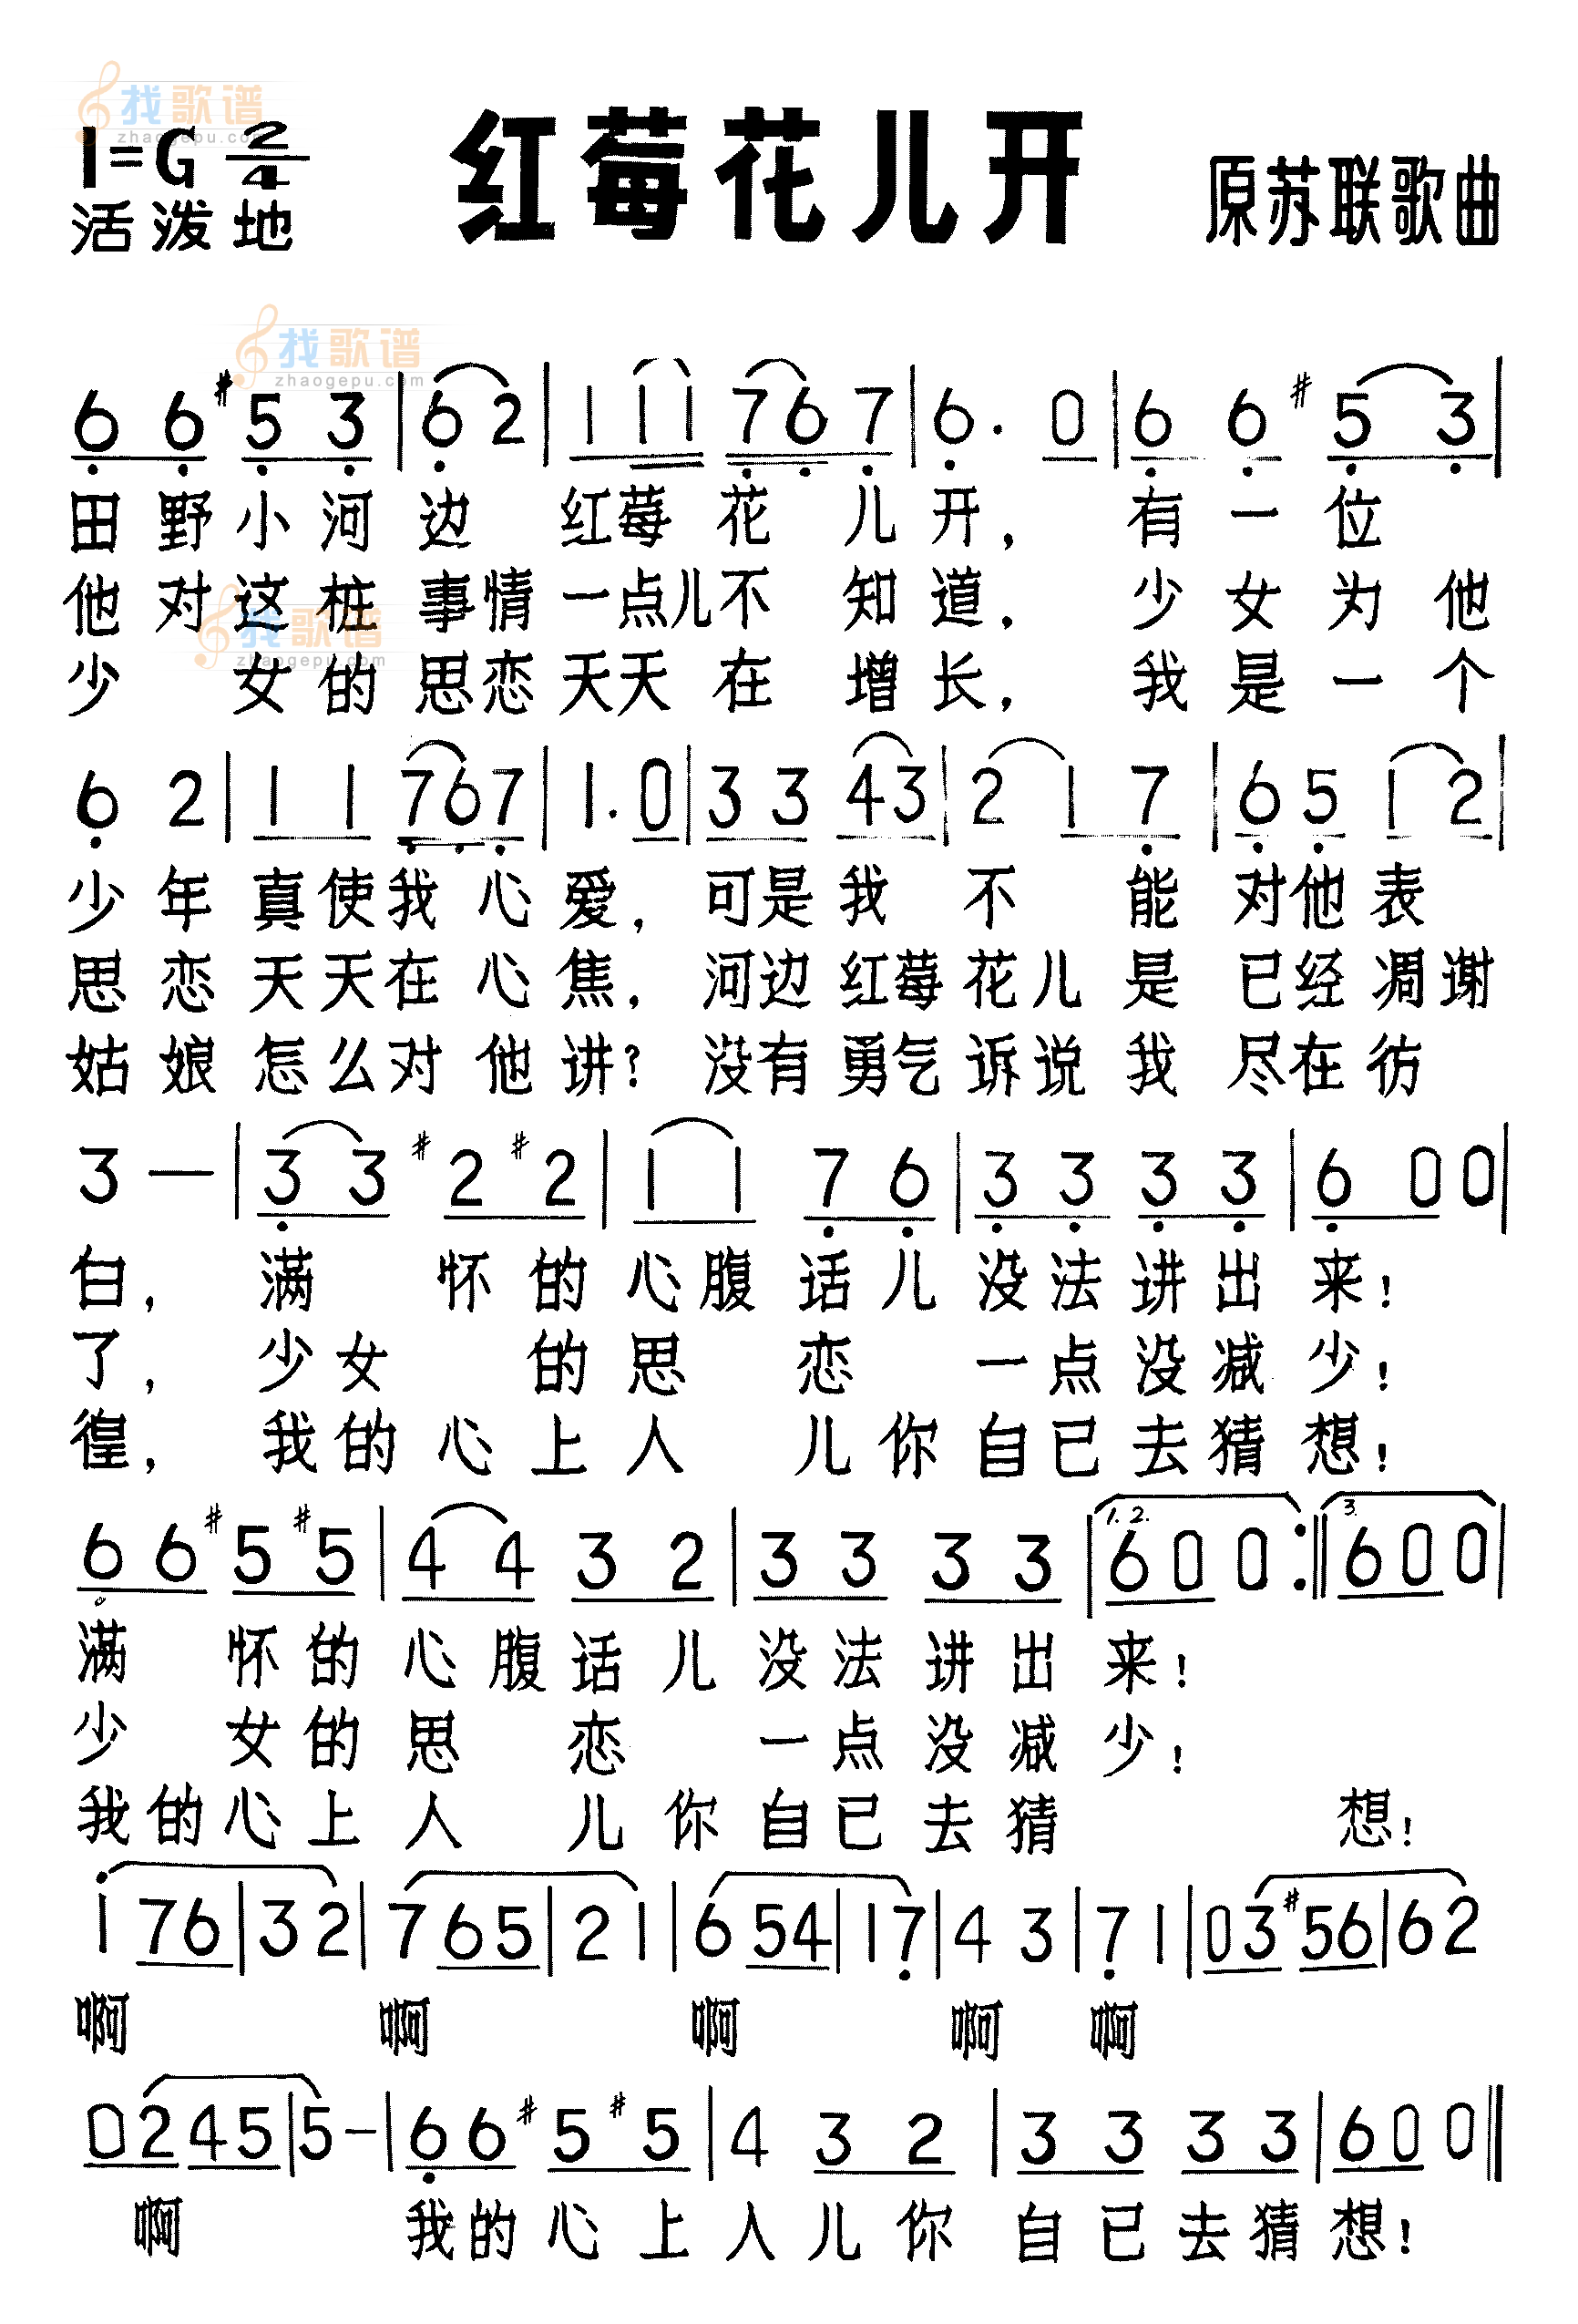 找歌谱
zhaogepu.com
1=G 2/4
红莓花儿开
原苏联歌曲
活泼地
找歌谱
zhaogepu.com
6 6 #5 3 | 6 2 | 1 1 1 7 6 7 | 6. 0 | 6 6 #5 3 |
田野小河边 红莓花儿开，有一位
他对这桩事情一点儿不知道，少女为他
找歌谱
zhaogepu.com
少女的思恋天天在增长，我是一个
6 2 | 1 1 7 6 7 | 1. 0 | 3 3 4 3 | 2 1 7 | 6 5 1 2 |
少年真使我心爱，可是我不能对他表
思恋天天在心焦，河边红莓花儿是已经凋谢
姑娘怎么对他讲？没有勇气诉说我尽在彷
3 — | 3 3 #2 #2 | 1 1 7 6 | 3 3 3 3 | 6 0 0 |
白，满怀的心腹话儿没法讲出来！
了，少女的思恋一点没减少！
徨，我的心上人儿你自己去猜想！
6 6 #5 #5 | 4 4 3 2 | 3 3 3 3 | 1.2. 6 0 0 :‖ 3. 6 0 0 |
满怀的心腹话儿没法讲出来！
少女的思恋一点没减少！
我的心上人儿你自己去猜想！
1 7 6 | 3 2 | 7 6 5 | 2 1 | 6 5 4 | 1 7 | 4 3 | 7 1 | 0 3 #5 6 | 6 2
啊 啊 啊 啊 啊
0 2 4 5 | 5 — | 6 6 #5 #5 | 4 3 2 | 3 3 3 3 | 6 0 0 ‖
啊 我的心上人儿你自己去猜想！